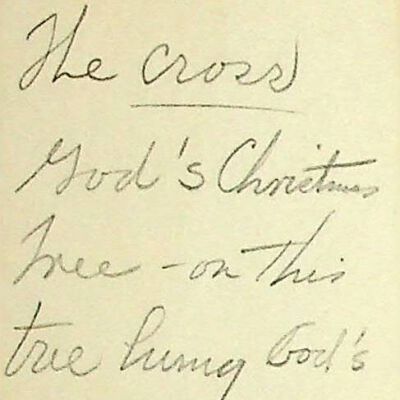 The cross
God's Christmas
Tree - on this
tree hung God's